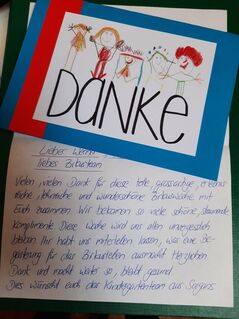 DANKE
Lieber
liebes Zirkusteam
Vielen, vielen Dank für diese tolle, grossartige, erlebnis
reiche, lehrreiche und wunderschöne Zirkuswoche mit
Euch zusammen. Wir bekamen so viele schöne, staunende
Komplimente. Diese Woche wird uns allen unvergesslich
bleiben. Ihr habt uns miterleben lassen, was eure Be-
geisterung für das Zirkusleben ausmacht. Herzlichen
Dank und macht weiter so, bleibt gesund.
Dies wünscht euch das Kindergartenteam aus